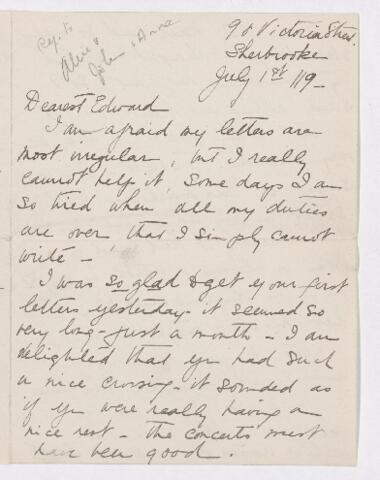 Alice &
John & Anna
90 Victoria Street.
Sherbrooke
July 1st 119-
Dearest Edward
I am afraid my letters are
most irregular, but I really
cannot help it, Some days I am
so tired when all my duties
are over that I simply cannot
write -
I was so glad to get your first
letters yesterday - it seemed so
very long - just a month - I am
delighted that you had such
a nice crossing - it sounded as
if you were really having a
nice rest - the concerts must
have been good.